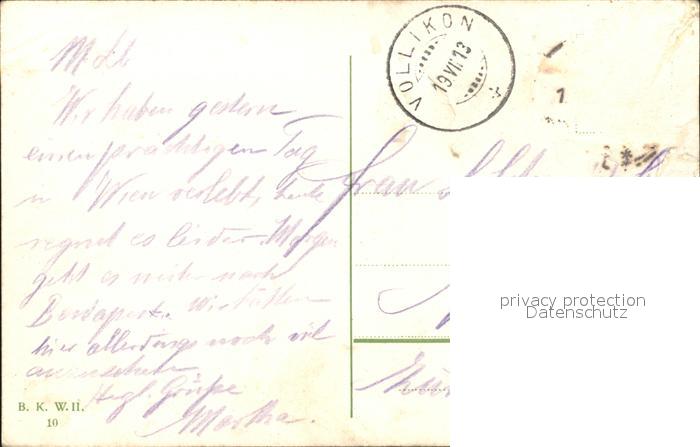 M. Lb
Wir haben gestern
einen prächtigen Tag
in Wien verlebt, heute
regnet es leider. Morgen
geht es weiter nach
Budapest. Wir hätten
hier allerdings noch viel
anzusehen
Hrzl. Grüsse
Martha.
B. K. W. II.
10
VOLLIKON
19 VI. 13
Frau
privacy protection
Datenschutz